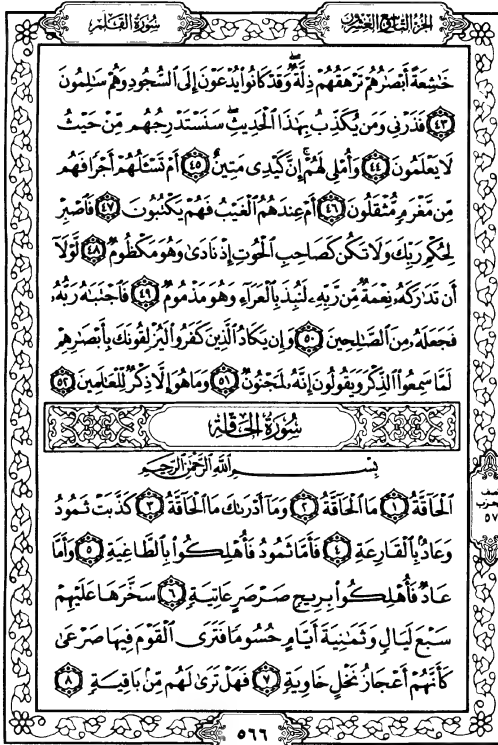 سُورَةُ القَلَمِ الجُزءُ التَّاسِعُ وَالعِشْرُونَ
خَٰشِعَةً أَبْصَٰرُهُمْ تَرْهَقُهُمْ ذِلَّةٌ ۖ وَقَدْ كَانُوا۟ يُدْعَوْنَ إِلَى ٱلسُّجُودِ وَهُمْ سَٰلِمُونَ
٤٣ فَذَرْنِى وَمَن يُكَذِّبُ بِهَٰذَا ٱلْحَدِيثِ ۖ سَنَسْتَدْرِجُهُم مِّنْ حَيْثُ
لَا يَعْلَمُونَ ٤٤ وَأُمْلِى لَهُمْ ۚ إِنَّ كَيْدِى مَتِينٌ ٤٥ أَمْ تَسْـَٔلُهُمْ أَجْرًا فَهُم
مِّن مَّغْرَمٍ مُّثْقَلُونَ ٤٦ أَمْ عِندَهُمُ ٱلْغَيْبُ فَهُمْ يَكْتُبُونَ ٤٧ فَٱصْبِرْ
لِحُكْمِ رَبِّكَ وَلَا تَكُن كَصَاحِبِ ٱلْحُوتِ إِذْ نَادَىٰ وَهُوَ مَكْظُومٌ ٤٨ لَّوْلَآ
أَن تَدَٰرَكَهُۥ نِعْمَةٌ مِّن رَّبِّهِۦ لَنُبِذَ بِٱلْعَرَآءِ وَهُوَ مَذْمُومٌ ٤٩ فَٱجْتَبَٰهُ رَبُّهُۥ
فَجَعَلَهُۥ مِنَ ٱلصَّٰلِحِينَ ٥٠ وَإِن يَكَادُ ٱلَّذِينَ كَفَرُوا۟ لَيُزْلِقُونَكَ بِأَبْصَٰرِهِمْ
لَمَّا سَمِعُوا۟ ٱلذِّكْرَ وَيَقُولُونَ إِنَّهُۥ لَمَجْنُونٌ ٥١ وَمَا هُوَ إِلَّا ذِكْرٌ لِّلْعَٰلَمِينَ ٥٢
سُورَةُ الحَاقَّةِ
بِسْمِ ٱللَّهِ ٱلرَّحْمَٰنِ ٱلرَّحِيمِ
ٱلْحَآقَّةُ ١ مَا ٱلْحَآقَّةُ ٢ وَمَآ أَدْرَىٰكَ مَا ٱلْحَآقَّةُ ٣ كَذَّبَتْ ثَمُودُ
وَعَادٌۢ بِٱلْقَارِعَةِ ٤ فَأَمَّا ثَمُودُ فَأُهْلِكُوا۟ بِٱلطَّاغِيَةِ ٥ وَأَمَّا
عَادٌ فَأُهْلِكُوا۟ بِرِيحٍ صَرْصَرٍ عَاتِيَةٍ ٦ سَخَّرَهَا عَلَيْهِمْ
سَبْعَ لَيَالٍ وَثَمَٰنِيَةَ أَيَّامٍ حُسُومًا فَتَرَى ٱلْقَوْمَ فِيهَا صَرْعَىٰ
كَأَنَّهُمْ أَعْجَازُ نَخْلٍ خَاوِيَةٍ ٧ فَهَلْ تَرَىٰ لَهُم مِّنۢ بَاقِيَةٍ ٨
نصف
الحزب
٥٧
٥٦٦